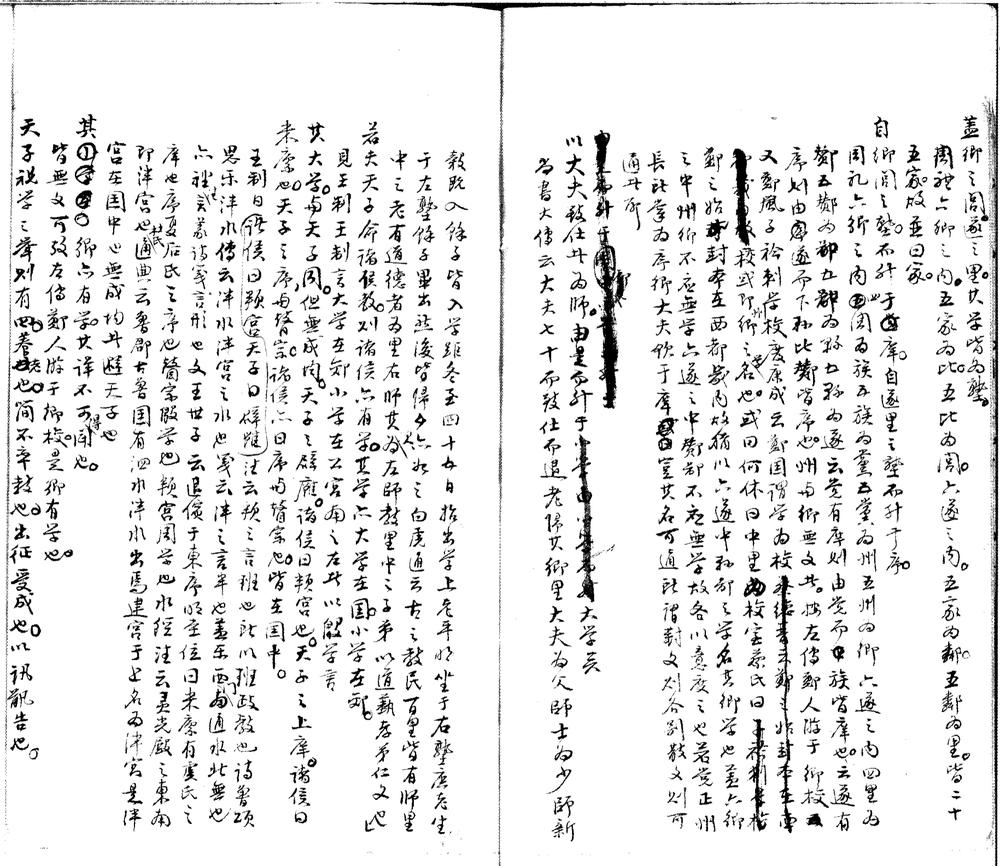 蓋鄉之閭遂之里其學皆為塾
周禮六鄉之內五家為比五比為閭六遂之內五家為鄰五鄰為里皆二十
五家故並曰家
自鄉閭之塾而升于庠自遂里之塾而升于序
周礼六鄉之內四閭為族五族為黨五黨為州五州為鄉六遂之內四里為
酇五酇為鄙五鄙為縣五縣為遂云黨有庠則由黨而族皆庠也云遂有
序則由遂而下和比酇皆序也州与鄉無文其按左傳鄭人游于鄉校
又鄭風子衿刺学校廢康成云鄭国謂学為校
校或即鄉之名也或曰何休曰中里為校室蔡氏曰
鄭之始封本在西都畿內故猶以六遂中和鄙之学名其鄉学也蓋六鄉
之中州鄉不應無学六遂之中酇鄙不應無学故各以意度之也若黨正州
長社掌為序鄉大夫飲于庠室其名可通所謂對文則各別散文則可
通其所
以大夫致仕其為師由是而升于大学矣
尚書大傳云大夫七十而致仕而退老歸其鄉里大夫為父師士為少師新
穀既入餘子皆入学距冬至四十五日始出学上老平明坐于右塾庶老坐
于左塾餘子畢出然後皆歸夕亦如之白虎通云古之教民百里皆有師里
中之老有道德者為里右師其次為左師教里中之子弟以道藝孝弟仁义也
若夫天子命諸侯教則諸侯亦有学其学亦大学在國小学在郊
見王制王制言大学在郊小学在公宮南之左此以殷学言
其大学与天子同但無成均天子之辟廱諸侯曰頖宮也天子之上庠諸侯曰
米廩也天子之序与瞽宗諸侯亦曰序与瞽宗也皆在国中
王制曰諸侯曰頖宮天子曰辟廱注云頖之言班也所以班政教也詩魯頌
思樂泮水傳云泮水泮宮之水也箋云泮之言半也蓋东西南通水北無也
亦禮注義詩箋言形也文王世子云退儐于東序明堂位曰米廩有虞氏之
庠也序夏后氏之序也瞽宗殷学也頖宮周学也水經注云灵光殿之東南
即泮宮也通典云魯郡古魯国有泗水泮水出焉建宮于上名為泮宮是泮
宮在国中也無成均其避天子也
其鄉亦有学其详不可得聞也
皆無文可考左傳鄭人游于鄉校是鄉有学也
天子視学之舉則有四養老也简不率教也出征受成也以訊馘告也